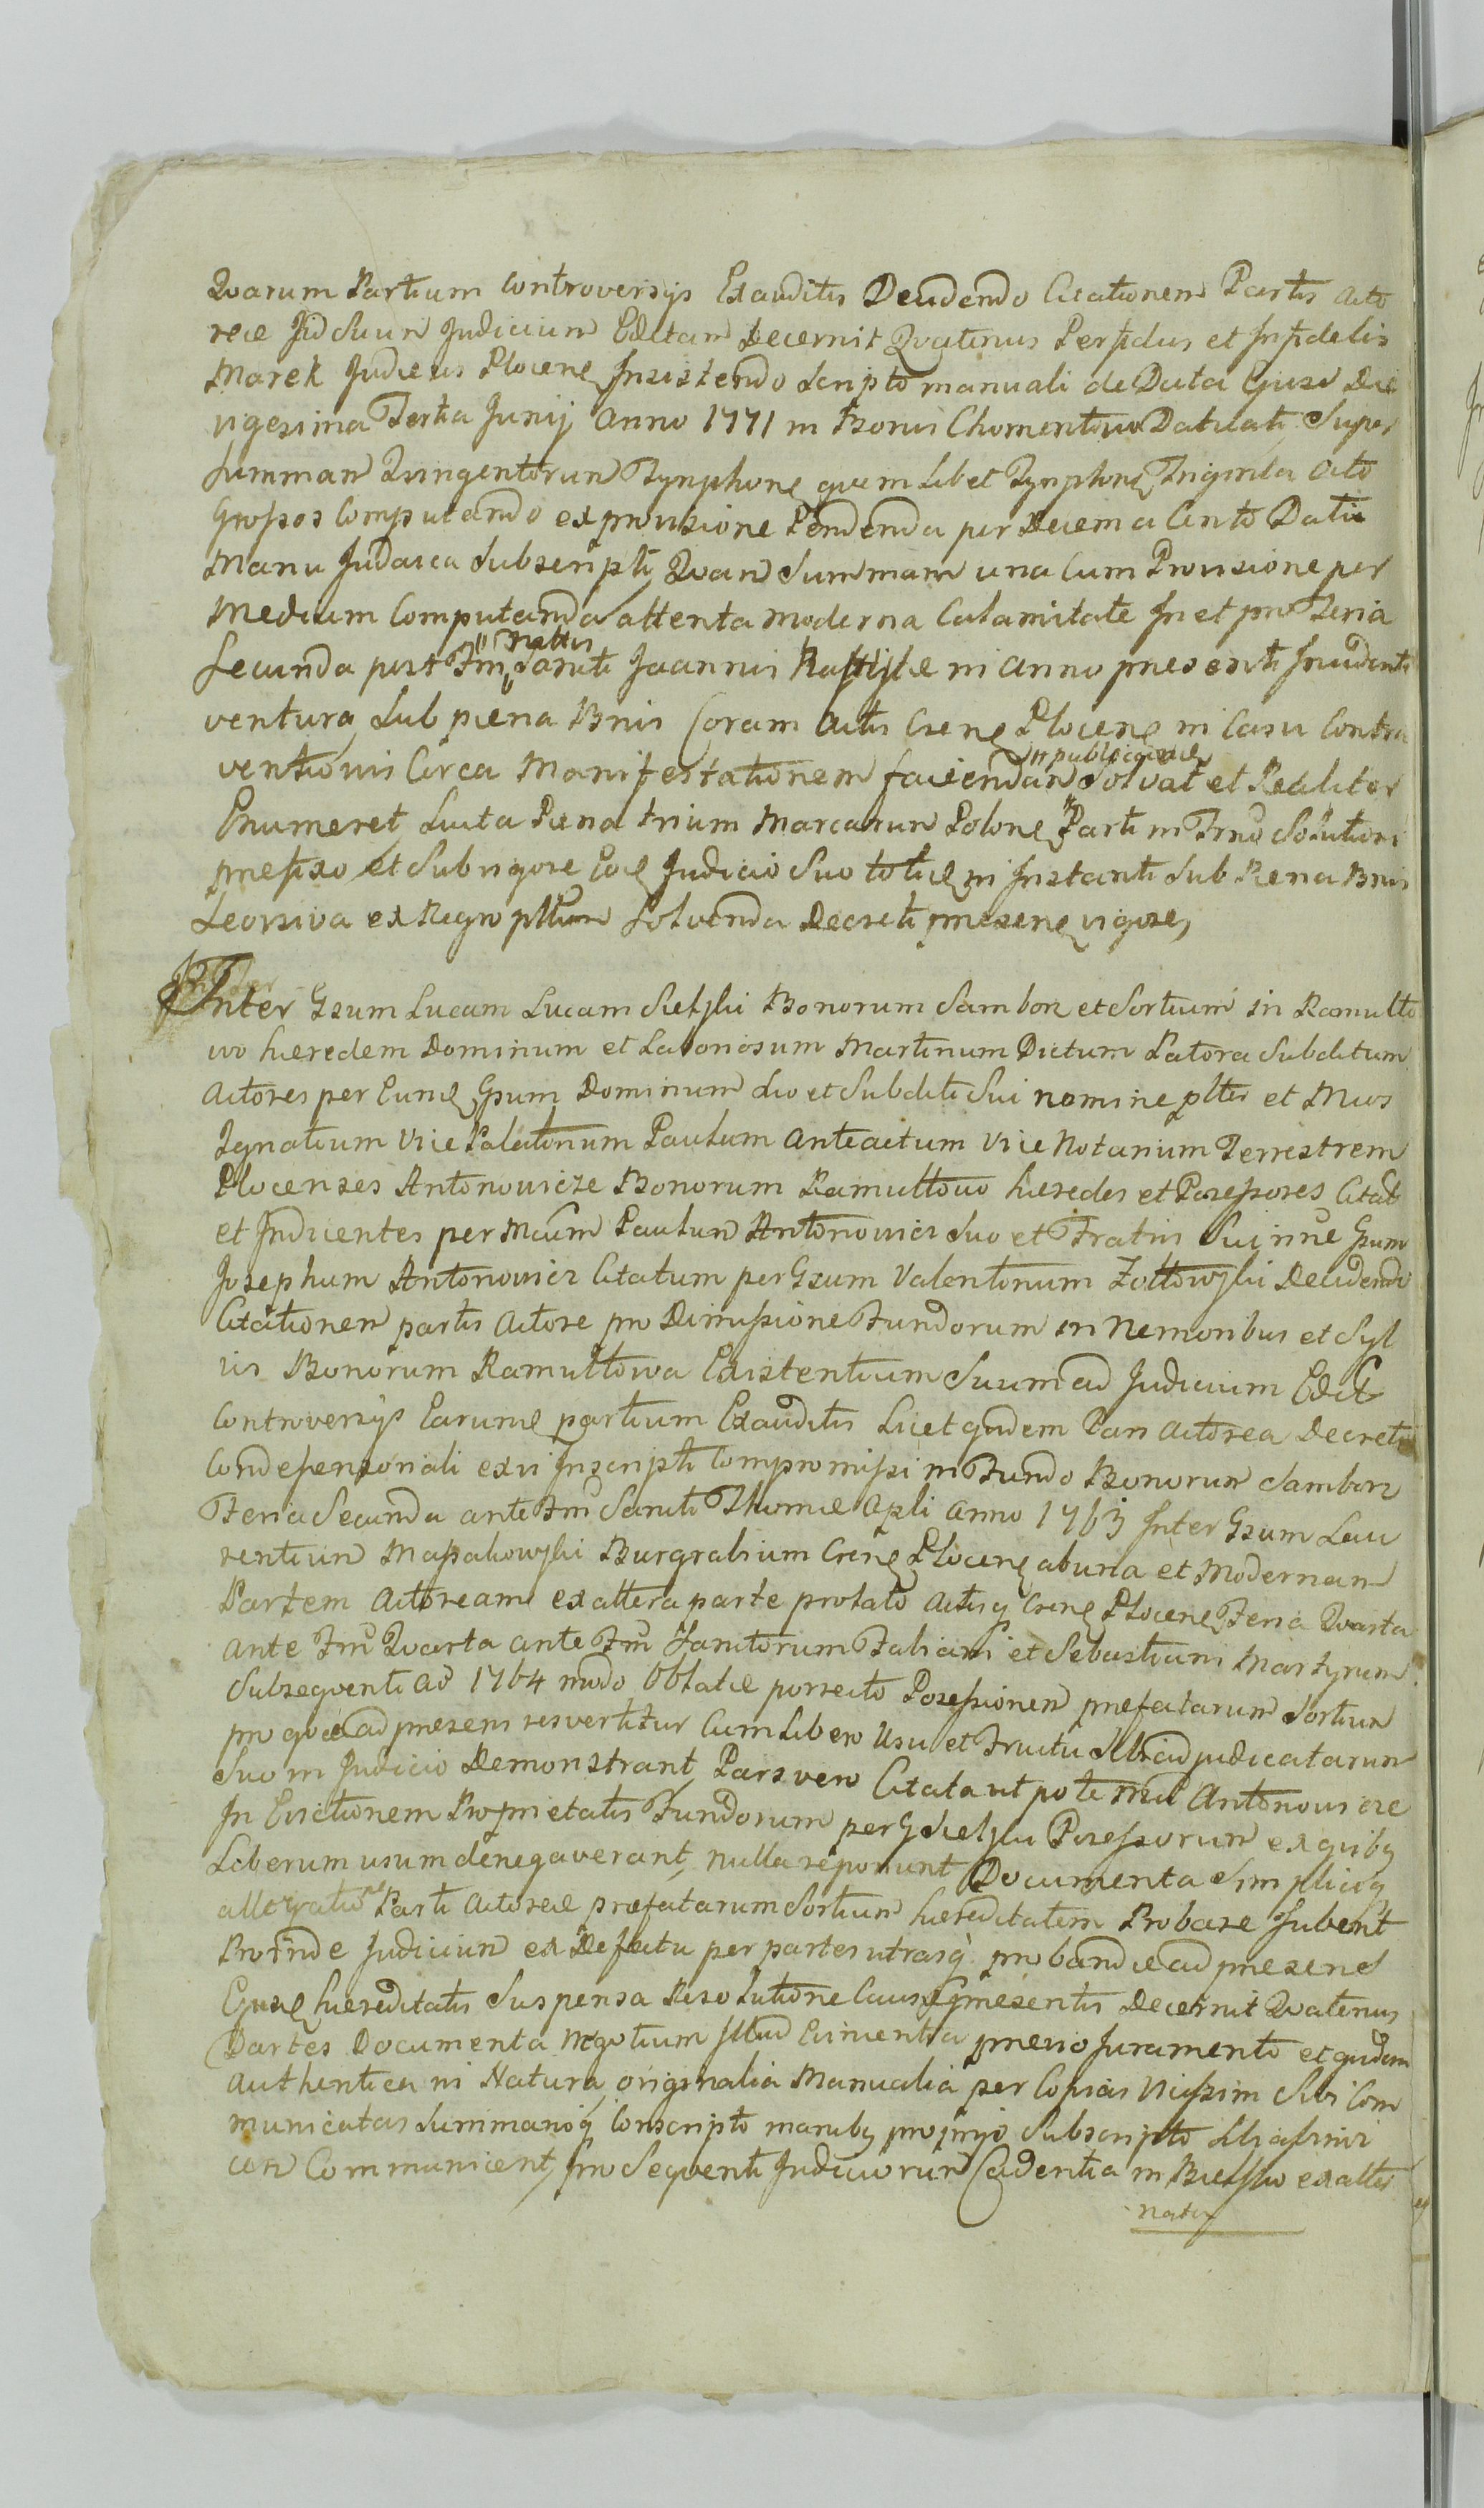 Qvarum Partium Controversÿs Exauditis Decidendo Citationem Partis Acto
reæ Ad Suum Judicium Editam Decernit Qvatenus Perfidus et Infidelis
Marek Judæus Plocens Insistendo Scripto manuali de Data Ejusd Die
vigesima Tertia Junij Anno 1771 in Bonis Chomentowo Datæ ati Super
Summam Qvingentorum Tynphons qvemlibet Tynphons Triginta Octo
Grossos Computando ex provisione Pendenda per Decem a Cento Datæ
Manu Judaica Subscripti, Qvam Summam una Cum Provisione per
Medium Computanda attenta moderna Calamitate In et pro Feria
Secunda post Fm Nattis Sancti Joannis Baptistæ in Anno præsenti Incidenti
ventura, Sub pæna Bnis Coram Actis Csens Plocens in Casu Contra
ventionis Circa Manifestationem faciendam publicandæ Solvat et Realiter
Enumeret, Lucta Pæna trium Marcarum Polons Parti in Frno Solutioni
præfixo et Sub rigore Eod Judicio Suo toties in Instanti Sub Pæna Bnis
Leorsiva ex Regro pltum Solvenda Decreti præsens vigore,
Inter Gsum Lucam Lucam Sielski Bonorum Samborz et Sortium in Ramulto
wo hæredem Dominum et Laboriosum Martinum Dictum Satora Subditum
Actores per Eund Gsum Dominum Suo et Subditi Sui nomine pltes et Mcos
Ignatium Vice Palatinum Paulum Anteactum Vice Notarium Terrestrem
Plocenses Antonowicze Bonorum Ramultowo hæredes et Possessores Citat
et Inducentes per Mcum Paulum Antonowicz Suo et Fratris Sui nne Gsum
Josephum Antonowicz Citatum per Gsum Valentinum Zottowski Decidendo
Citationem partis Actoræ pro Dimissione Fundorum in Nemoribus et Syl
vis Bonorum Ramultowa Existentium Suum ad Judicium Edit
Controversÿs Earund partium Exauditis Licet qvidem Pars Actorea Decreto
Condefensionali ex vi Inscripti Compromissi in Fundo Bonorum Samborz
Feria Secunda ante Fm Sancti Thomæ Apli Anno 1763 Inter Gsum Lau
rentium Massakowski Burgrabium Csens Plocens ab una et Modernam
Partem Actoream ex altera parte prolato Actisq Csens Plocens Feria Qvarta
Ante Fm Qvarta ante Fm Sanctorum Fabiani et Sebastiani Martyrum
Subseqventi Ao 1764 modo Oblatæ porrecto Possessionem præfatarum Sortium
pro qvo ad præsens resvertitur Cum Libero Usu et Fructu Sibi adjudicatarum
Suo in Judicio Demonstrant, Pars vero Citata ut pote Mci Antonowicze
In Evictionem Proprietatis Fundorum per G Sielski Possessorum ex qvibq
Liberum usum denegaverant, nulla reponunt Documenta Simplicisq
allegatio Parti Actoreæ præfatarum Sortium hæreditatem Probare Jubent
Proinde Judicium ex Defectu per partes utrasq probandæ ad præsens
Ejusd hæreditatis Suspensa Resolutione Causæ præsentis Decernit Qvatenus
Partes Documenta Negotium Illud Evincentia prævio Juramento et qvidem
Authentica in Natura, originalia Manualia per Copias Vicissim Sibi Com
municatas Summarioq Conscripto manibq proprÿs Subscripto
Communicent, pro Seqventi Judiciorum Cadentia in Bielsko ex altes
natis